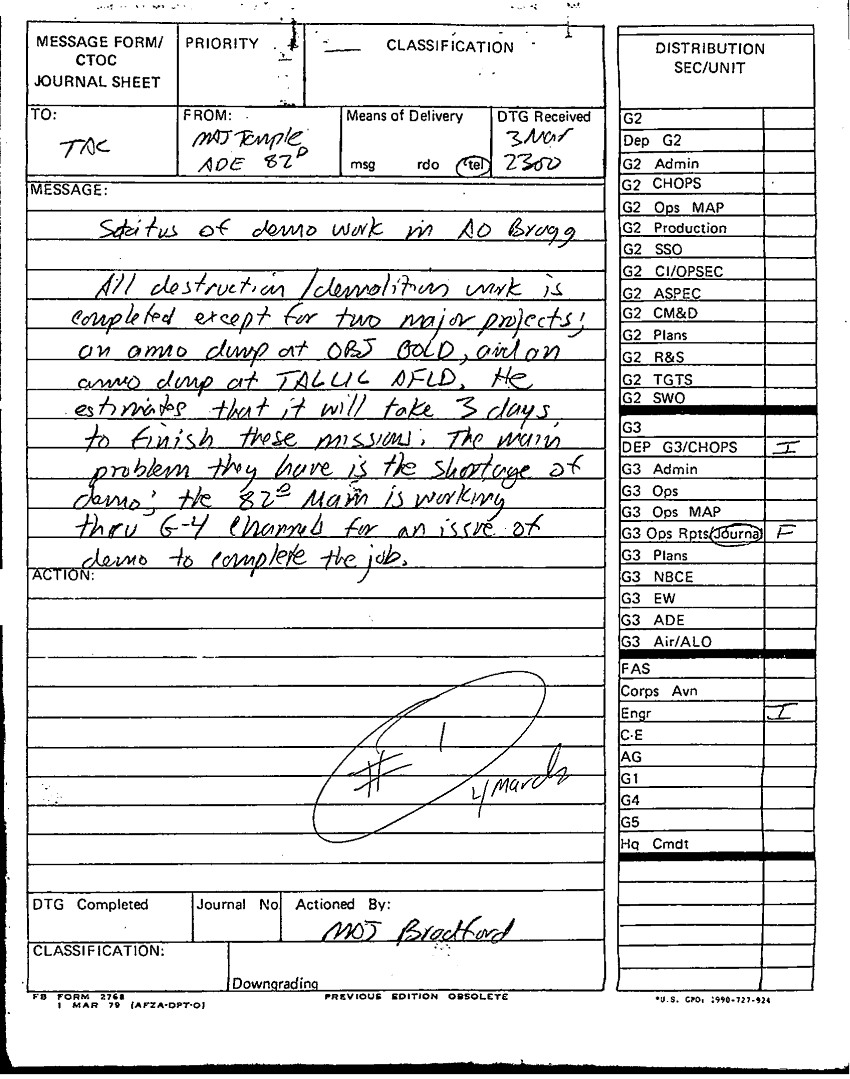 MESSAGE FORM/
CTOC
JOURNAL SHEET
PRIORITY
CLASSIFICATION
TO:
TAC
FROM:
MAJ Temple
ADE 82D
Means of Delivery
msg rdo tel
DTG Received
3 Mar
2300
MESSAGE:
Status of demo work in AO Bragg
All destruction/demolition work is
completed except for two major projects;
an ammo dump at OBJ GOLD, and an
ammo dump at TALLIL AFLD. He
estimates that it will take 3 days
to finish these missions. The main
problem they have is the shortage of
demo; the 82D Main is working
thru G-4 Channels for an issue of
demo to complete the job.
ACTION:
# 1
4 March
DTG Completed
Journal No
Actioned By:
MAJ Bradford
CLASSIFICATION:
Downgrading
FB FORM 2768
1 MAR 79 (AFZA-DPT-O)
PREVIOUS EDITION OBSOLETE
DISTRIBUTION
SEC/UNIT
G2
Dep G2
G2 Admin
G2 CHOPS
G2 Ops MAP
G2 Production
G2 SSO
G2 CI/OPSEC
G2 ASPEC
G2 CM&D
G2 Plans
G2 R&S
G2 TGTS
G2 SWO
G3
DEP G3/CHOPS I
G3 Admin
G3 Ops
G3 Ops MAP
G3 Ops Rpts/Journal F
G3 Plans
G3 NBCE
G3 EW
G3 ADE
G3 Air/ALO
FAS
Corps Avn
Engr I
C-E
AG
G1
G4
G5
Hq Cmdt
*U.S. GPO: 1990-727-924